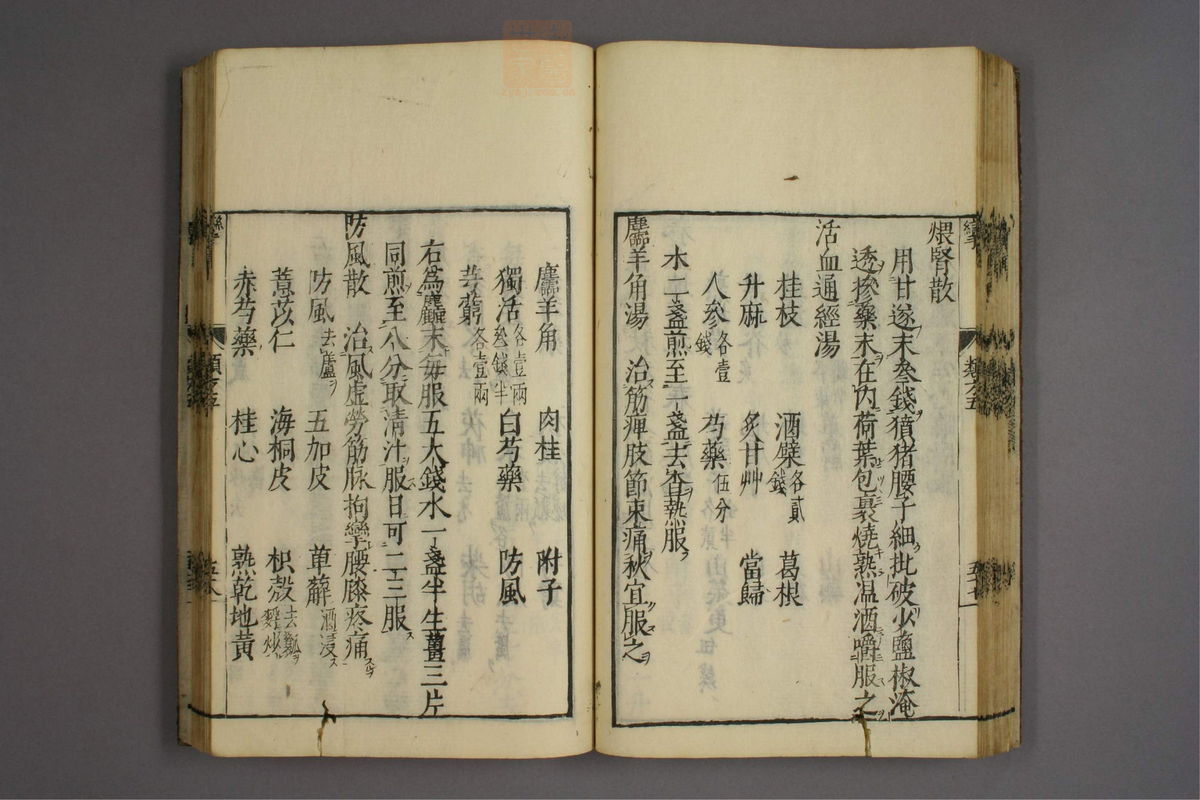 煨腎散
用甘遂末叄錢獖猪腰子細批破少鹽椒淹
透摻藥末在內荷葉包裹燒熟温酒嚼服之
活血通經湯
桂枝 酒糵各貳錢 葛根
升麻 炙甘艸 當歸
人參各壹錢 芍藥伍分
水二盞煎至一盞去渣熱服
麢羊角湯 治筋痺肢節束痛秋宜服之
麢羊角 肉桂 附子
獨活各壹兩叄錢半 白芍藥 防風
芎藭各壹兩
右為麤末每服五大錢水一盞半生薑三片
同煎至八分取清汁服日可二三服
防風散 治風虛勞筋脉拘攣腰膝疼痛
防風去蘆 五加皮 萆薢酒浸
薏苡仁 海桐皮 枳殼去瓤麩炒
赤芍藥 桂心 熟乾地黃